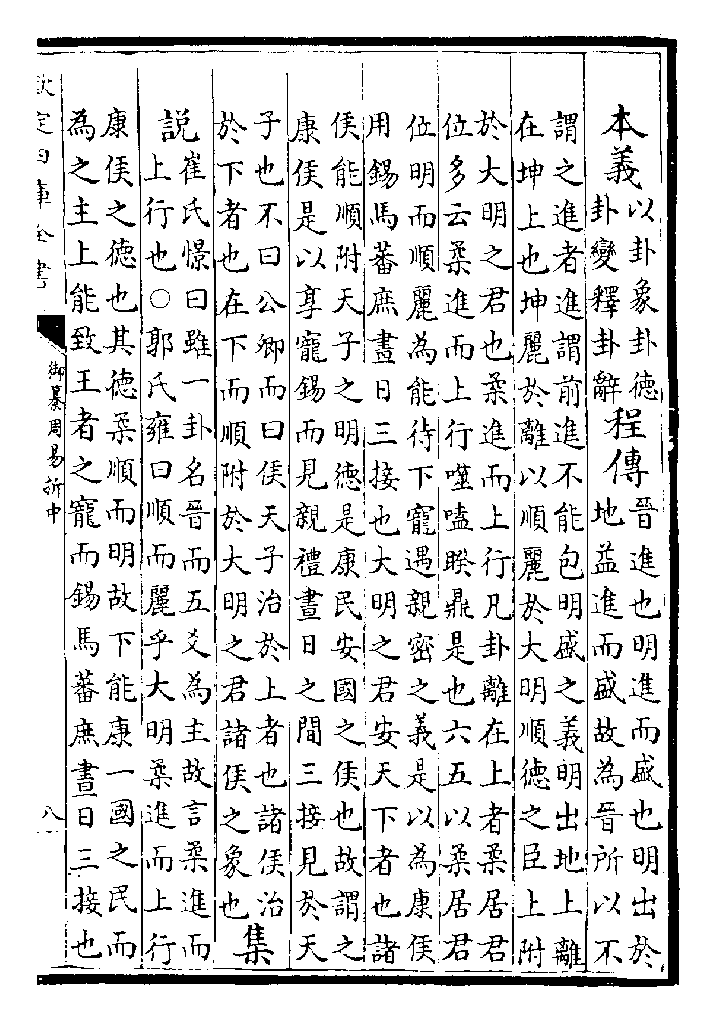 本義以卦象卦德
卦變釋卦辭程傳晉進也明進而盛也明出於
地益進而盛故為晉所以不
謂之進者進謂前進不能包明盛之義明出地上離
在坤上也坤麗於離以順麗於大明順德之臣上附
於大明之君也柔進而上行凡卦離在上者柔居君
位多云柔進而上行噬嗑睽鼎是也六五以柔居君
位明而順麗為能待下寵遇親密之義是以為康侯
用錫馬蕃庶晝日三接也大明之君安天下者也諸
侯能順附天子之明德是康民安國之侯也故謂之
康侯是以享寵錫而見親禮晝日之間三接見於天
子也不曰公卿而曰侯天子治於上者也諸侯治
於下者也在下而順附於大明之君諸侯之象也集
說崔氏憬曰雖一卦名晉而五爻為主故言柔進而
上行也○郭氏雍曰順而麗乎大明柔進而上行
康侯之德也其德柔順而明故下能康一國之民而
為之主上能致王者之寵而錫馬蕃庶晝日三接也
欽定四庫全書
御纂周易折中
八